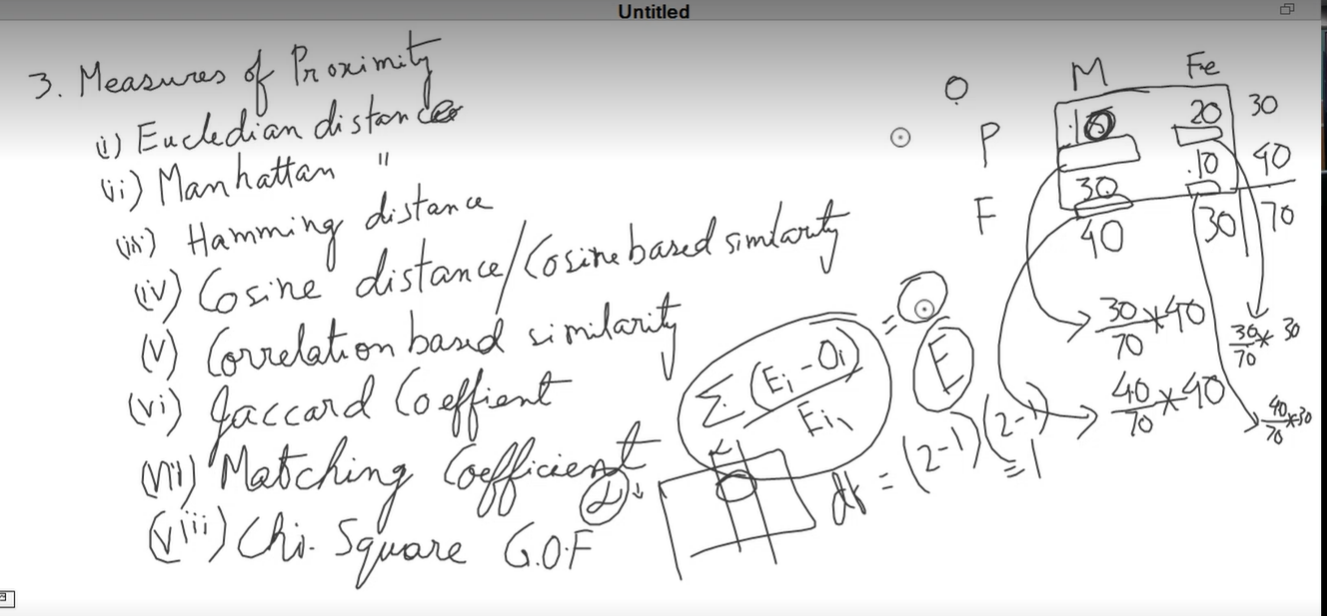 Untitled
3. Measures of Proximity
(i) Eucledian distance
(ii) Manhattan "
(iii) Hamming distance
(iv) Cosine distance/Cosine based similarity
(v) Correlation based similarity
(vi) Jaccard Coeffient
(vii) Matching Coefficient
(viii) Chi-Square G.O.F
O
M Fe
P 10 20 30
F 30 10 40
40 30 70
30/70 × 40
30/70 × 30
40/70 × 40
40/70 × 30
Σ (Ei - Oi)/Ei = O
E
df = (2-1)(2-1)
= 1
α